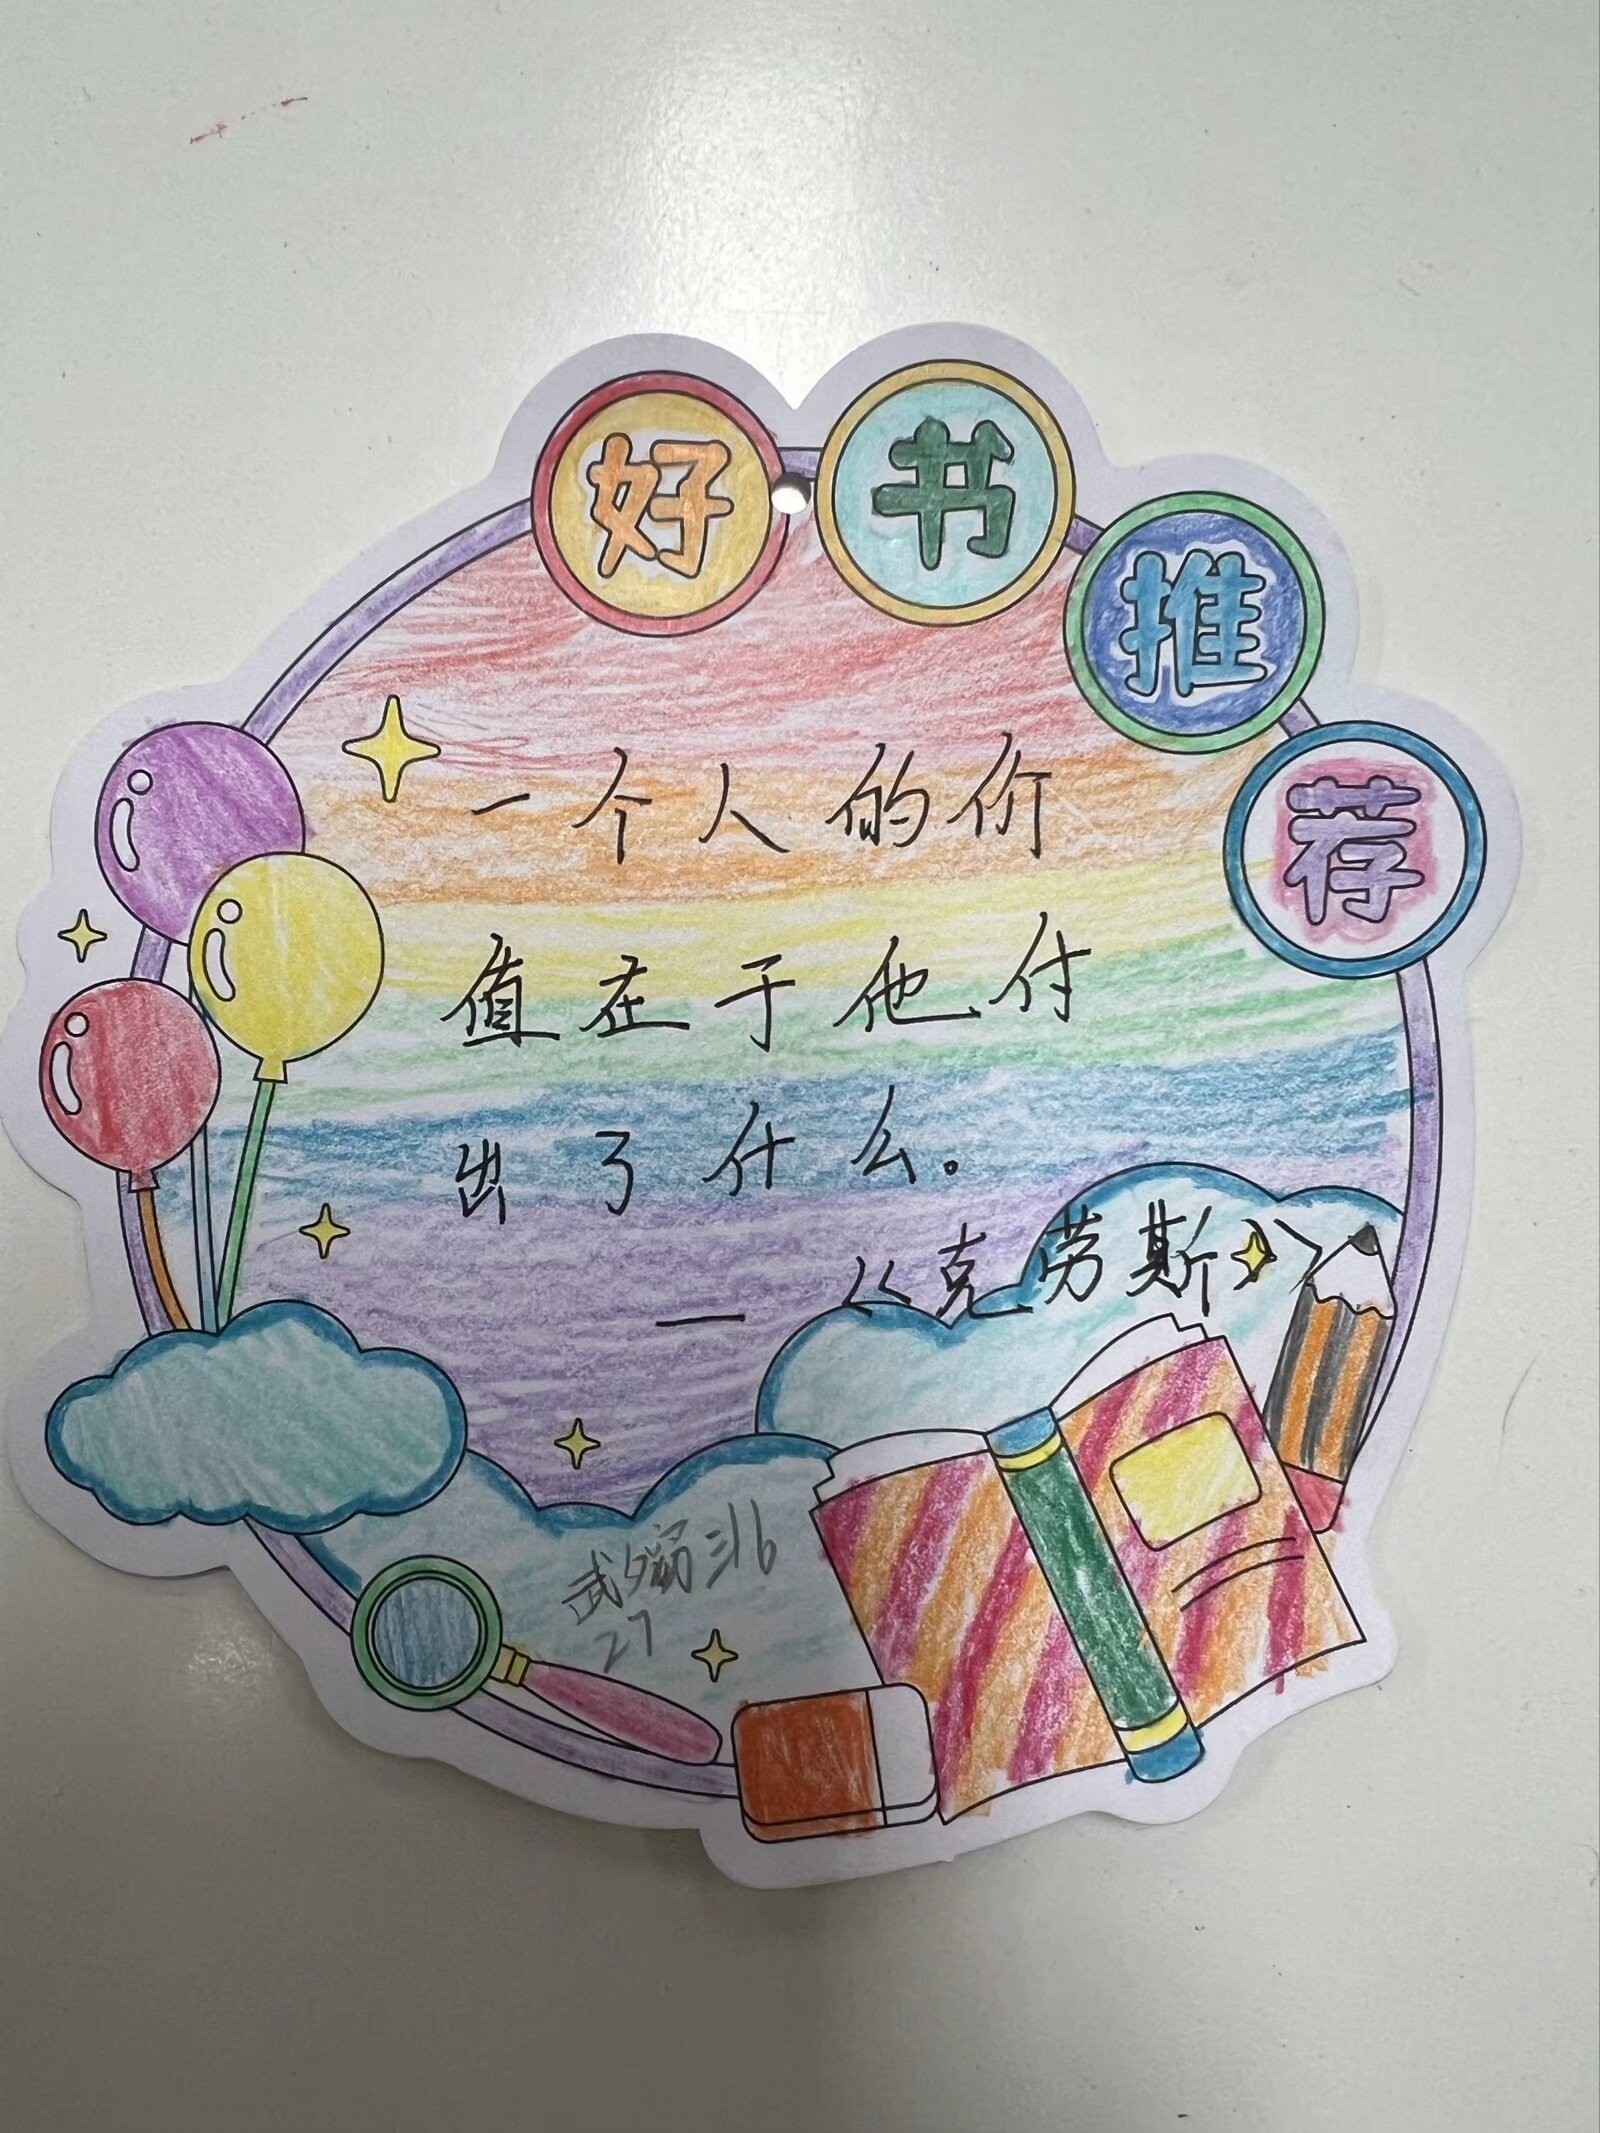 好书推荐
一个人的价
值在于他付
出了什么。
——《克劳斯》
武夕 三16
27